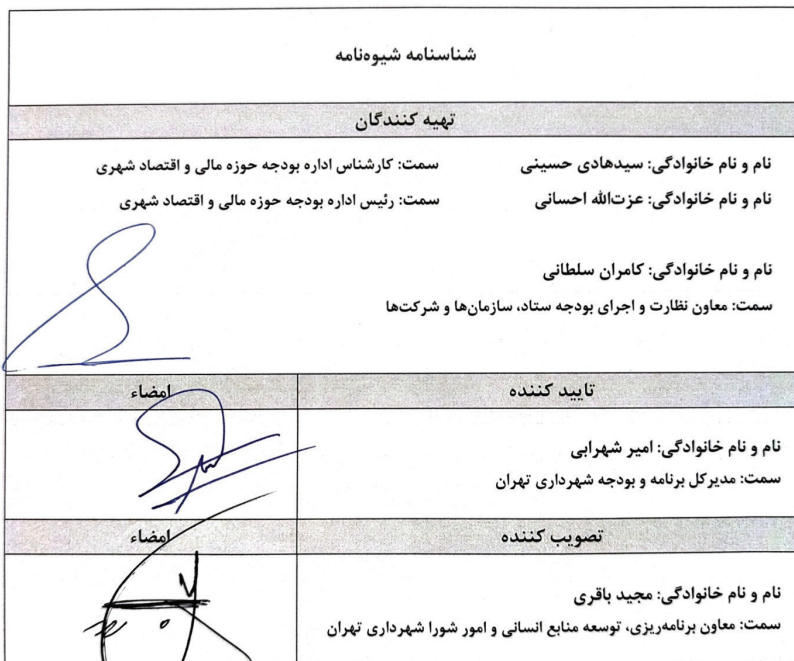 شناسنامه شیوه‌نامه
تهیه کنندگان
نام و نام خانوادگی: سیدهادی حسینی سمت: کارشناس اداره بودجه حوزه مالی و اقتصاد شهری
نام و نام خانوادگی: عزت‌الله احسانی سمت: رئیس اداره بودجه حوزه مالی و اقتصاد شهری
نام و نام خانوادگی: کامران سلطانی
سمت: معاون نظارت و اجرای بودجه ستاد، سازمان‌ها و شرکت‌ها
تایید کننده امضاء
نام و نام خانوادگی: امیر شهرابی
سمت: مدیرکل برنامه و بودجه شهرداری تهران
تصویب کننده امضاء
نام و نام خانوادگی: مجید باقری
سمت: معاون برنامه‌ریزی، توسعه منابع انسانی و امور شورا شهرداری تهران